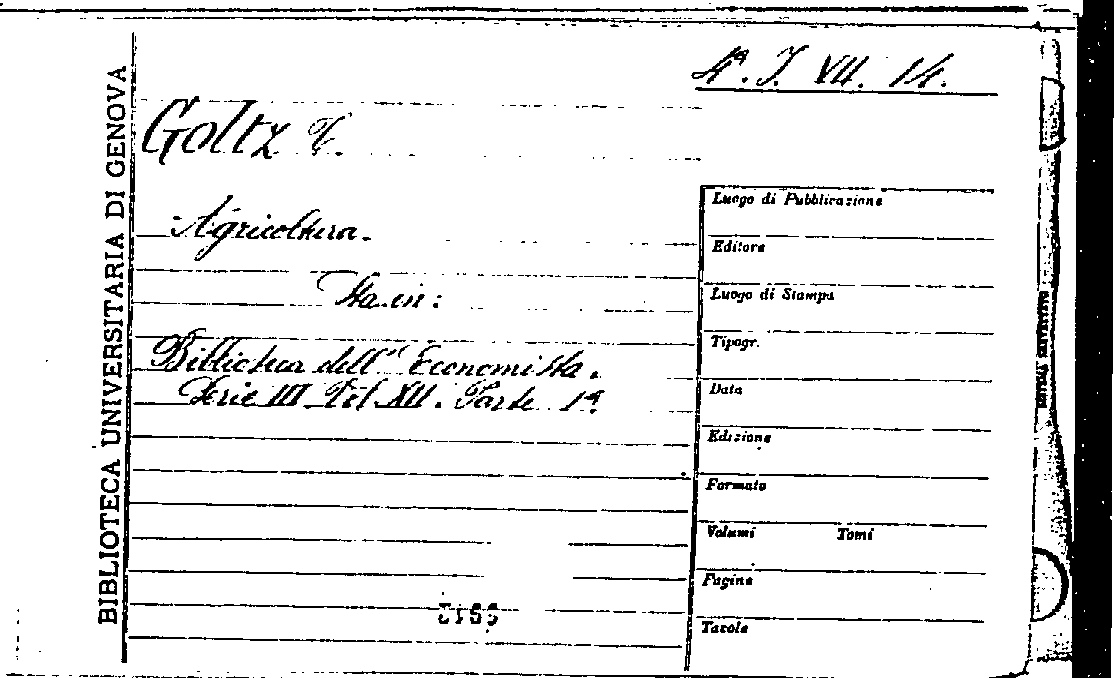 4ª. J. VII. 14.
BIBLIOTECA UNIVERSITARIA DI GENOVA
Goltz T.
Agricoltura.
Sta in:
Biblioteca dell' Economista.
Serie III Vol XII. Parte 1ª.
Luogo di Pubblicazione
Editore
Luogo di Stampa
Tipogr.
Data
Edizione
Formato
Volumi Tomi
Pagine
Tavole